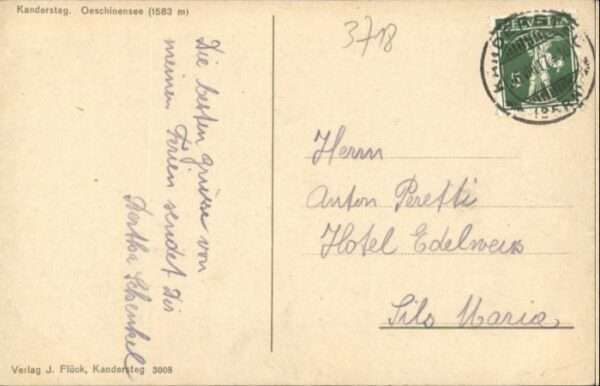 Kandersteg. Oeschinensee (1583 m)
3718
Die besten Grüsse von
meinen Ferien sendet Dir
Bertha Schenkel
Herrn
Anton Peretti
Hotel Edelweiss
Sils Maria
Verlag J. Flück, Kandersteg 3008
KANDERSTEG
(BERN)